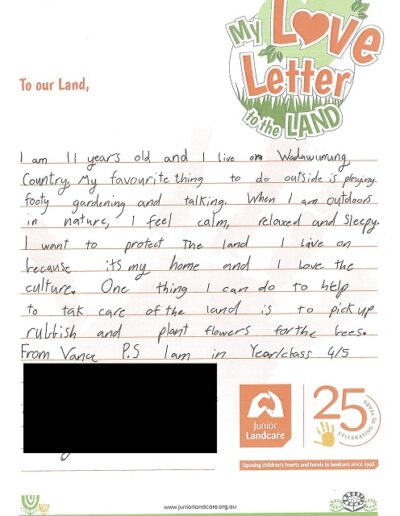 My Love
Letter
to the LAND
To our Land,
I am 11 years old and I live on Wadawurrung
Country. My favourite thing to do outside is playing
footy gardening and talking. When I am outdoors
in nature, I feel calm, relaxed and sleepy.
I want to protect The land I live on
because its my home and I love the
culture. One thing I can do to help
to take care of the land is to pick up
rubbish and plant flowers for the bees.
From Vance P.S I am in Year/class 4/5
Junior
Landcare
25 YEARS
CELEBRATING
Opening children's hearts and hands to landcare since 1998
www.juniorlandcare.org.au